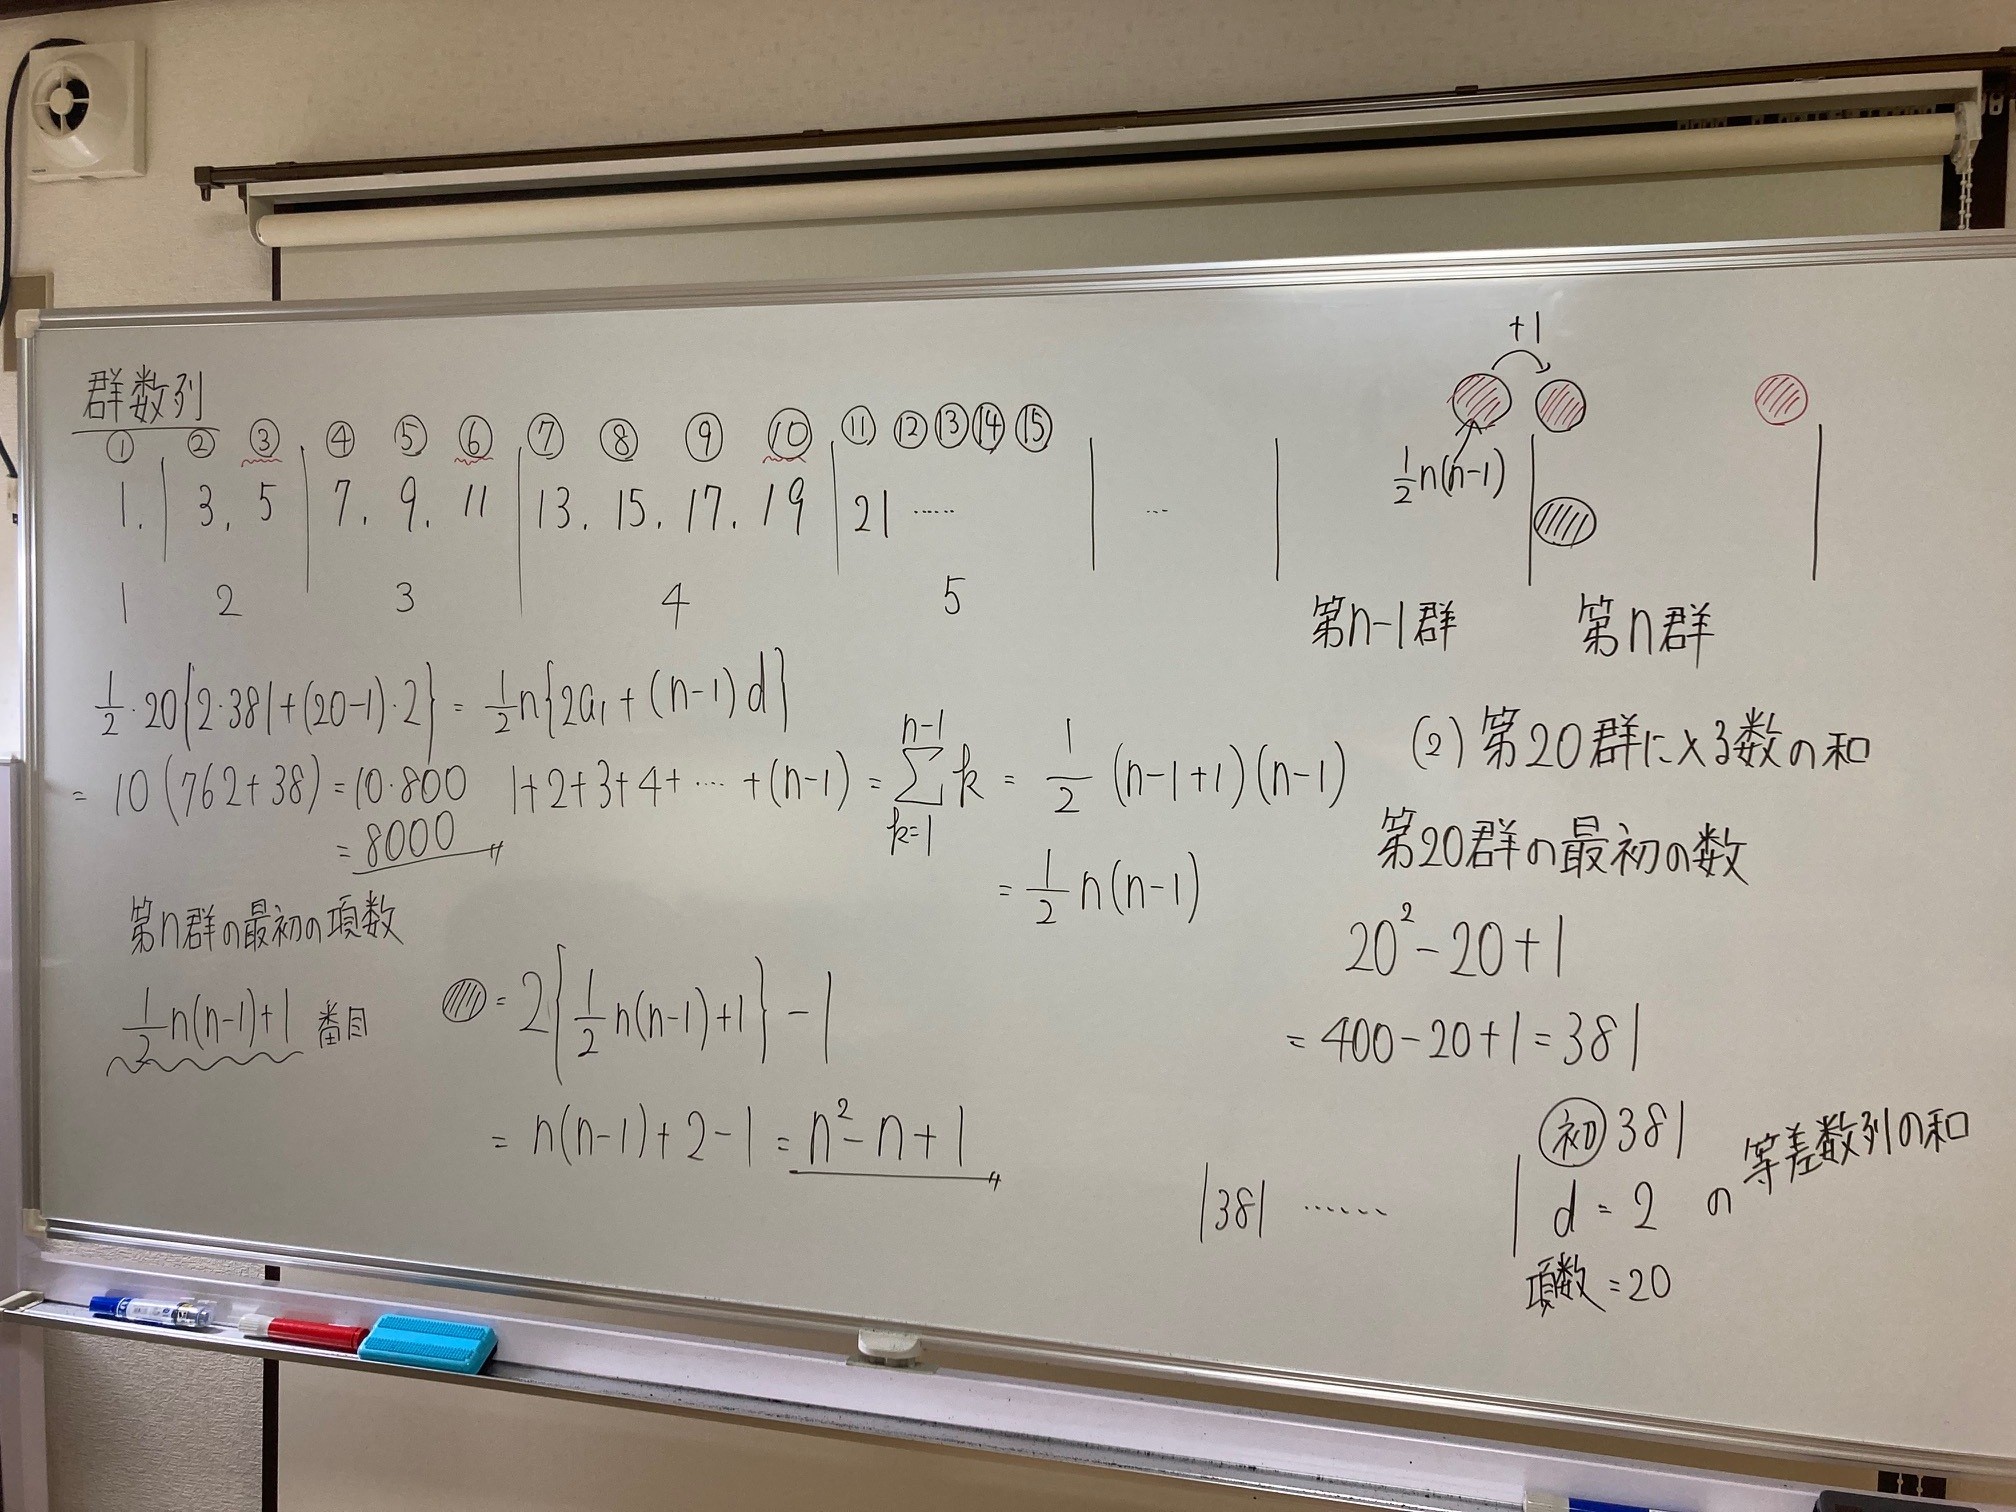 群数列
① ② ③ ④ ⑤ ⑥ ⑦ ⑧ ⑨ ⑩ ⑪ ⑫ ⑬ ⑭ ⑮
1. | 3. 5 | 7. 9. 11 | 13. 15. 17. 19 | 21 …… | … |
1 2 3 4 5
+1
1/2 n(n-1)
第n-1群 第n群
1/2・20{2・381+(20-1)・2} = 1/2 n{2a₁+(n-1)d}
= 10(762+38) = 10・800
= 8000
1+2+3+4+…+(n-1) = Σ[k=1, n-1] k = 1/2 (n-1+1)(n-1)
= 1/2 n(n-1)
第n群の最初の項数
1/2 n(n-1)+1 番目
= 2{1/2 n(n-1)+1}-1
= n(n-1)+2-1 = n²-n+1
(2) 第20群に入る数の和
第20群の最初の数
20²-20+1
= 400-20+1 = 381
|381 …… |
初 381
d = 2 の等差数列の和
項数 = 20